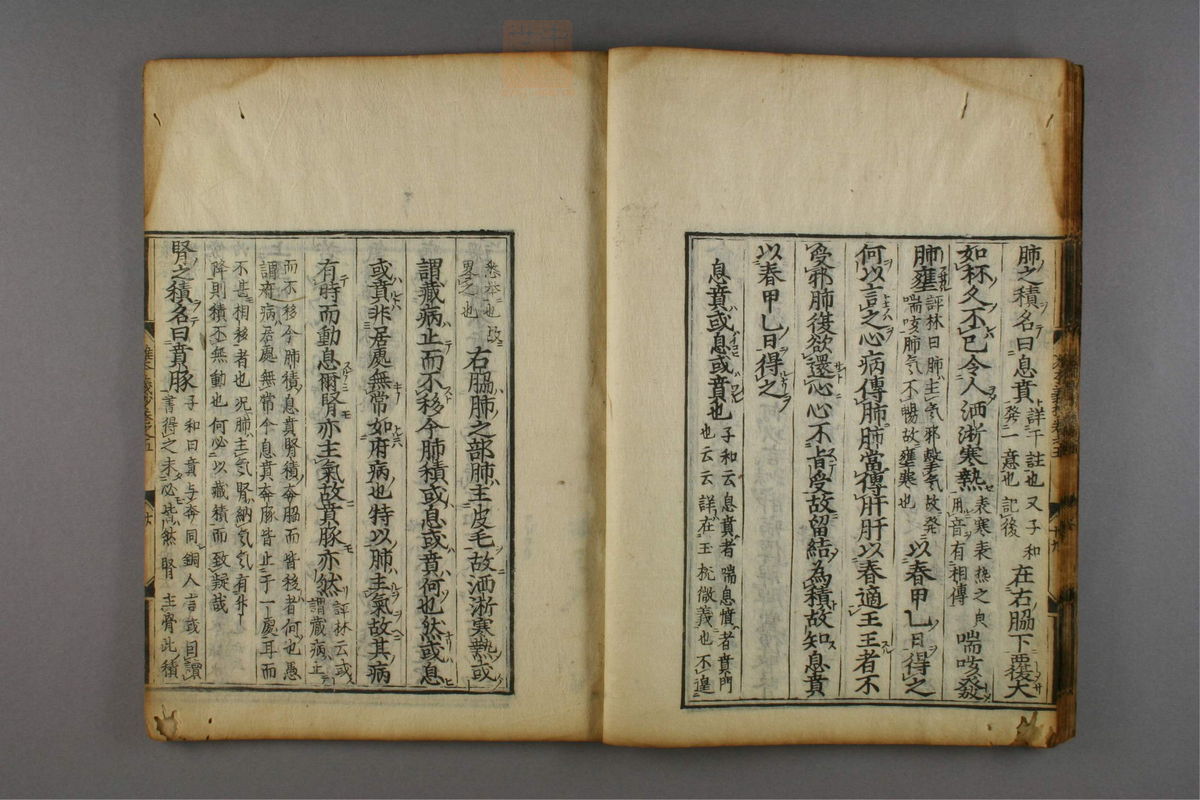 肺之積名曰息賁詳下註也又子和
発一意也記後
在右脇下覆大
如杯久不已令人洒淅寒熱表寒表熱之良
用音有相傳
喘咳發
肺壅評林曰肺主氣邪擊氣故発
喘咳肺氣不暢故壅寒也
以春甲乙日得之
何以言之心病傳肺肺當傳肝肝以春適王王者不
受邪肺復欲還心心不肯受故留結為積故知息賁
以春甲乙日得之
息賁或息或賁也子和云息賁者喘息憤者賁門
也云云詳在玉机微義也不遑
悉本也故
畧之也
右脇肺之部肺主皮毛故洒淅寒熱或
謂藏病止而不移今肺積或息或賁何也然或息
或賁非居處無常如府病也特以肺主氣故其病
有時而動息爾腎亦主氣故賁豚亦然評林云或
謂藏病止
而不移今肺積息賁腎積奔豚而皆移者何也愚
謂府病居處無常今息賁奔豚皆止于一處耳而
不甚相移者也况肺主氣腎納氣氣有升
降則積不無動也何必以藏積而致疑哉
腎之積名曰賁豚子和曰賁与奔同銅人言或因讀
書得之未必皆然腎主骨此積